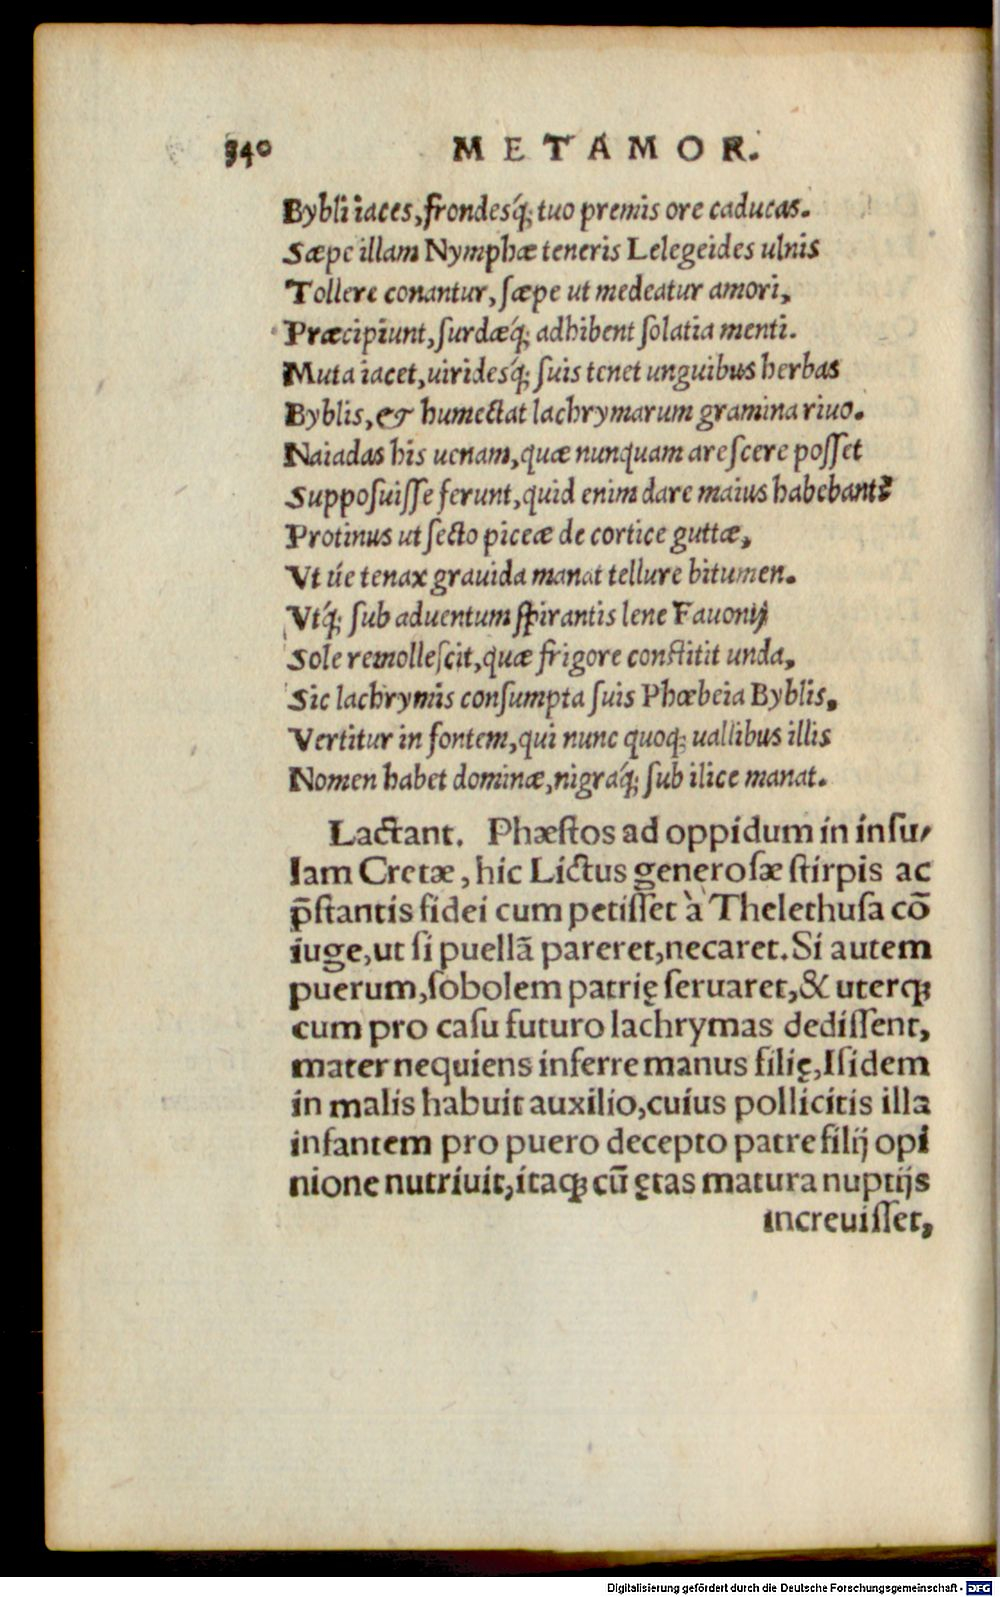 340 METAMOR.
Bybli iaces, frondesq́; tuo premis ore caducas.
Sæpe illam Nymphæ teneris Lelegeides ulnis
Tollere conantur, sæpe ut medeatur amori,
Præcipiunt, surdæq́; adhibent solatia menti.
Muta iacet, uiridesq́; suis tenet unguibus herbas
Byblis, & humectat lachrymarum gramina riuo.
Naiadas his uenam, quæ nunquam arescere posset
Supposuisse ferunt, quid enim dare maius habebant?
Protinus ut secto piceæ de cortice guttæ,
Vt úe tenax grauida manat tellure bitumen.
Vtq́; sub aduentum spirantis lene Fauonij
Sole remollescit, quæ frigore constitit unda,
Sic lachrymis consumpta suis Phœbeia Byblis,
Vertitur in fontem, qui nunc quoq; uallibus illis
Nomen habet dominæ, nigraq́; sub ilice manat.
Lactant. Phæstos ad oppidum in insu-
lam Cretæ, hic Lictus generosæ stirpis ac
p̄stantis fidei cum petisset à Thelethusa cō
iuge, ut si puellā pareret, necaret. Si autem
puerum, sobolem patrię seruaret, & uterq;
cum pro casu futuro lachrymas dedissent,
mater nequiens inferre manus filię, Isidem
in malis habuit auxilio, cuius pollicitis illa
infantem pro puero decepto patre filij opi
nione nutriuit, itaq; cū ętas matura nuptijs
increuisset,
Digitalisierung gefördert durch die Deutsche Forschungsgemeinschaft - DFG